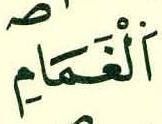 اَلْغَمَامِ